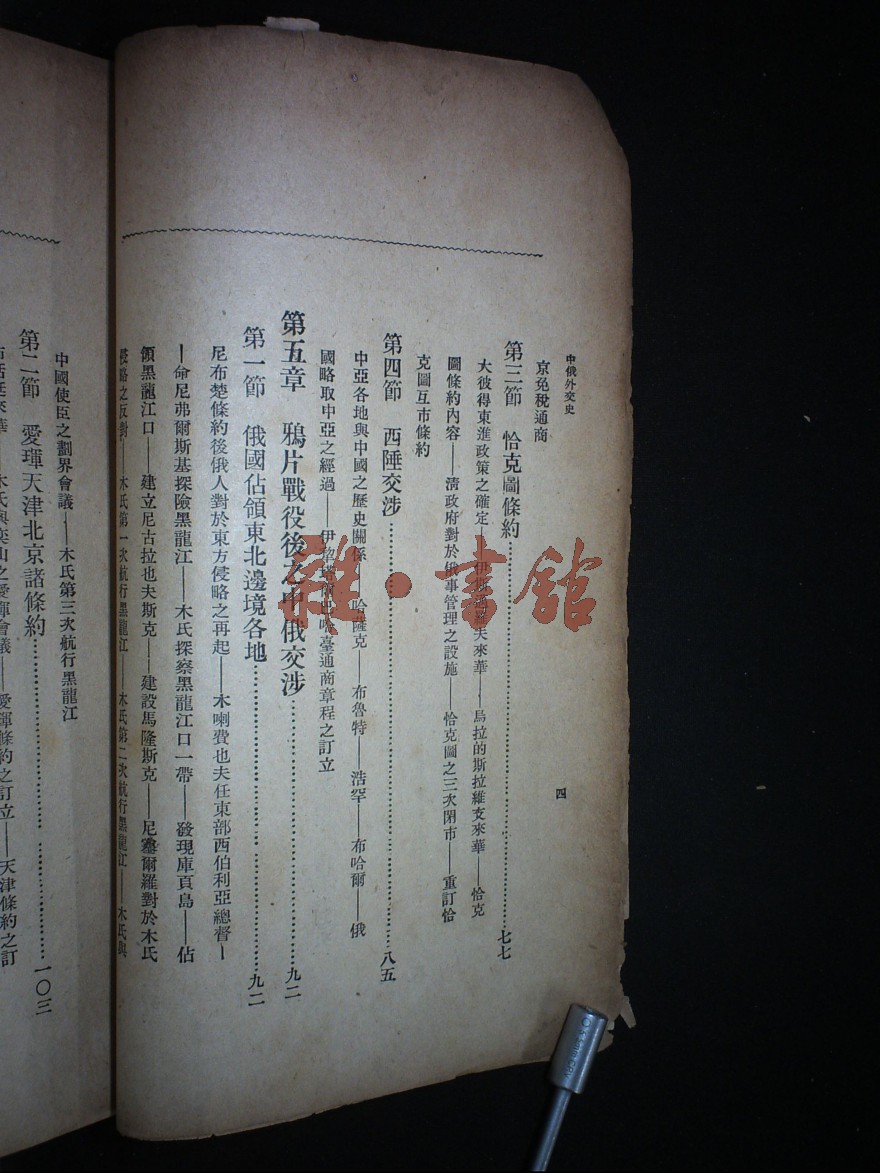 中俄外交史
四
京免稅通商
第三節　恰克圖條約……七七
大彼得東進政策之確定——伊斯邁羅夫來華——烏拉的斯拉維支來華——恰克
圖條約內容——淸政府對於俄事管理之設施——恰克圖之三次閉市——重訂恰
克圖互市條約
第四節　西陲交涉……八五
中亞各地與中國之歷史關係——哈薩克——布魯特——浩罕——布哈爾——俄
國略取中亞之經過——伊犂塔爾巴哈臺通商章程之訂立
第五章　鴉片戰役後之中俄交涉……九二
第一節　俄國佔領東北邊境各地……九二
尼布楚條約後俄人對於東方侵略之再起——木喇費也夫任東部西伯利亞總督—
—命尼弗爾斯基探險黑龍江——木氏探察黑龍江口一帶——發現庫頁島——佔
領黑龍江口——建立尼古拉也夫斯克——建設馬隆斯克——尼塞爾羅對於木氏
侵略之反對——木氏第一次航行黑龍江——木氏第二次航行黑龍江——木氏與
中國使臣之劃界會議——木氏第三次航行黑龍江
第二節　愛琿天津北京諸條約……一〇三
木氏與奕山之愛琿會議——愛琿條約之訂立——天津條約之訂
雜·書館